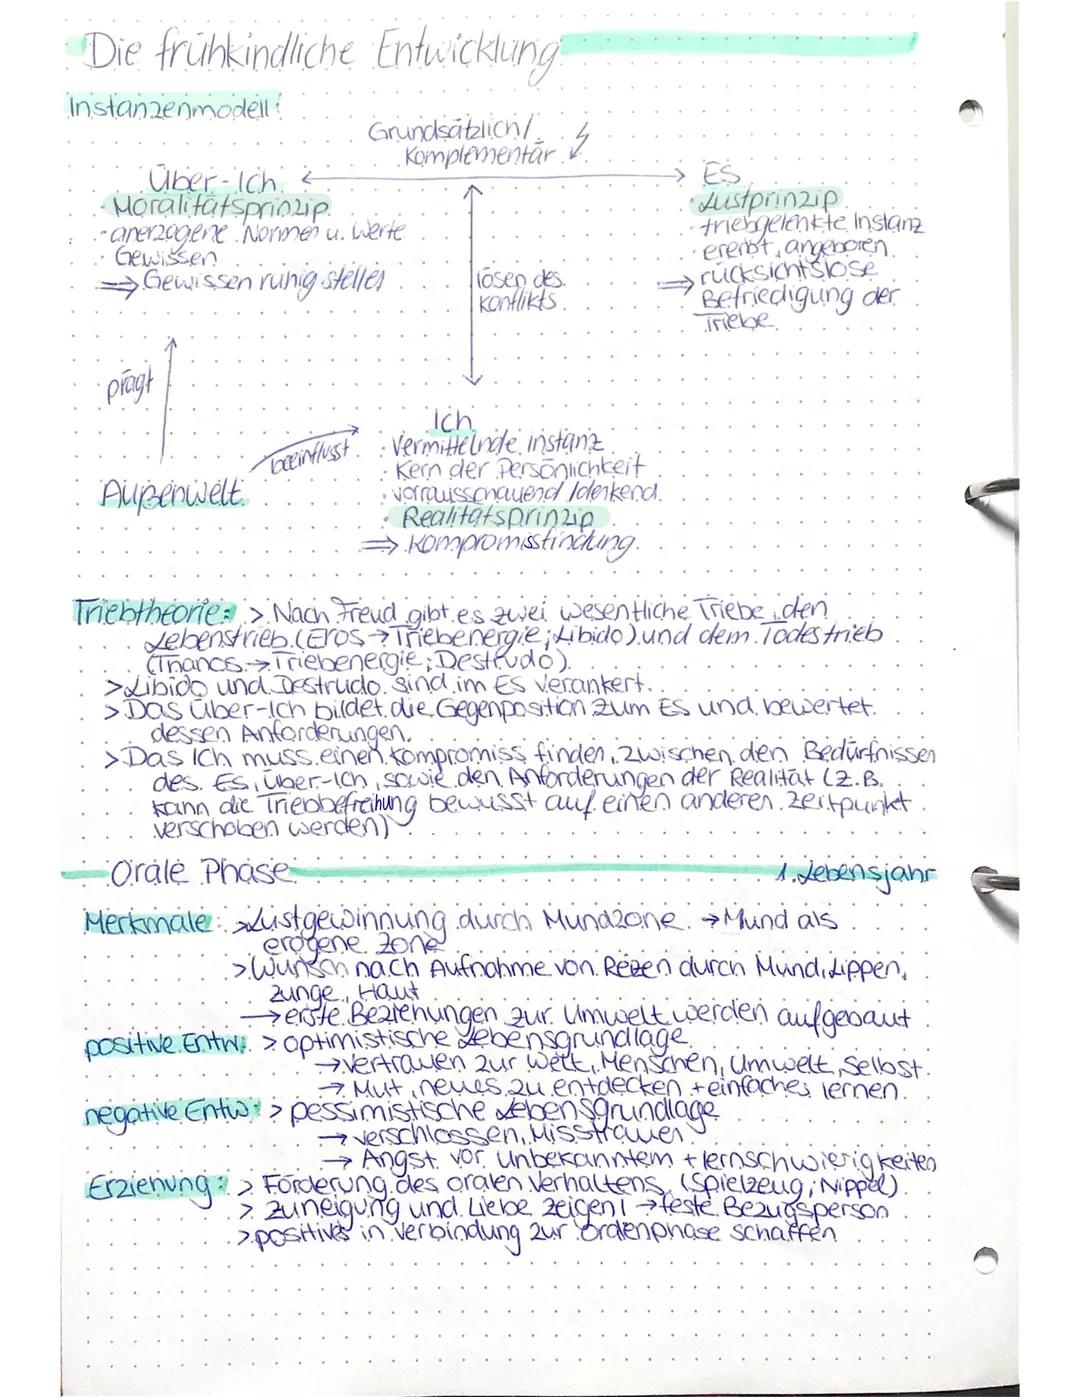 Die frühkindliche Entwicklung
Instanzenmodell:
Grundsätzlich/
Komplementär
Über-Ich
· Moralitätsprinzip
· anerzogene Normen u. Werte
· Gewissen
⇒ Gewissen ruhig stellen
ES
· Lustprinzip
· triebgelenkte Instanz
· ererbt, angeboren
⇒ rücksichtslose
Befriedigung der
Triebe
lösen des
Konflikts
prägt
beeinflusst
Außenwelt
Ich
· Vermittelnde Instanz
· Kern der Persönlichkeit
· vorrausschauend /denkend
· Realitätsprinzip
⇒ Kompromissfindung
Triebtheorie: > Nach Freud gibt es zwei wesentliche Triebe, den
Lebenstrieb (Eros → Triebenergie; Libido) und dem Todestrieb
(Thanos → Triebenergie; Destrudo)
> Libido und Destrudo sind im Es verankert.
> Das Über-Ich bildet die Gegenposition zum Es und bewertet
dessen Anforderungen.
> Das Ich muss einen Kompromiss finden, zwischen den Bedürfnissen
des Es, Über-Ich, sowie den Anforderungen der Realität (z.B.
kann die Triebbefreihung bewusst auf einen anderen Zeitpunkt
verschoben werden)
Orale Phase 1. Lebensjahr
Merkmale: > Lustgewinnung durch Mundzone → Mund als
erogene Zone
> Wunsch nach Aufnahme von Reizen durch Mund, Lippen,
Zunge, Haut
→ erste Beziehungen zur Umwelt werden aufgebaut
positive Entw.: > optimistische Lebensgrundlage
→ Vertrauen zur Welt, Menschen, Umwelt, Selbst
→ Mut, neues zu entdecken + einfaches lernen
negative Entw.: > pessimistische Lebensgrundlage
→ verschlossen, Misstrauen
→ Angst vor unbekanntem + lernschwierigkeiten
Erziehung: > Förderung des oralen Verhaltens (Spielzeug; Nippel)
> Zuneigung und Liebe zeigen! → feste Bezugsperson
> positives in verbindung zur schaffen